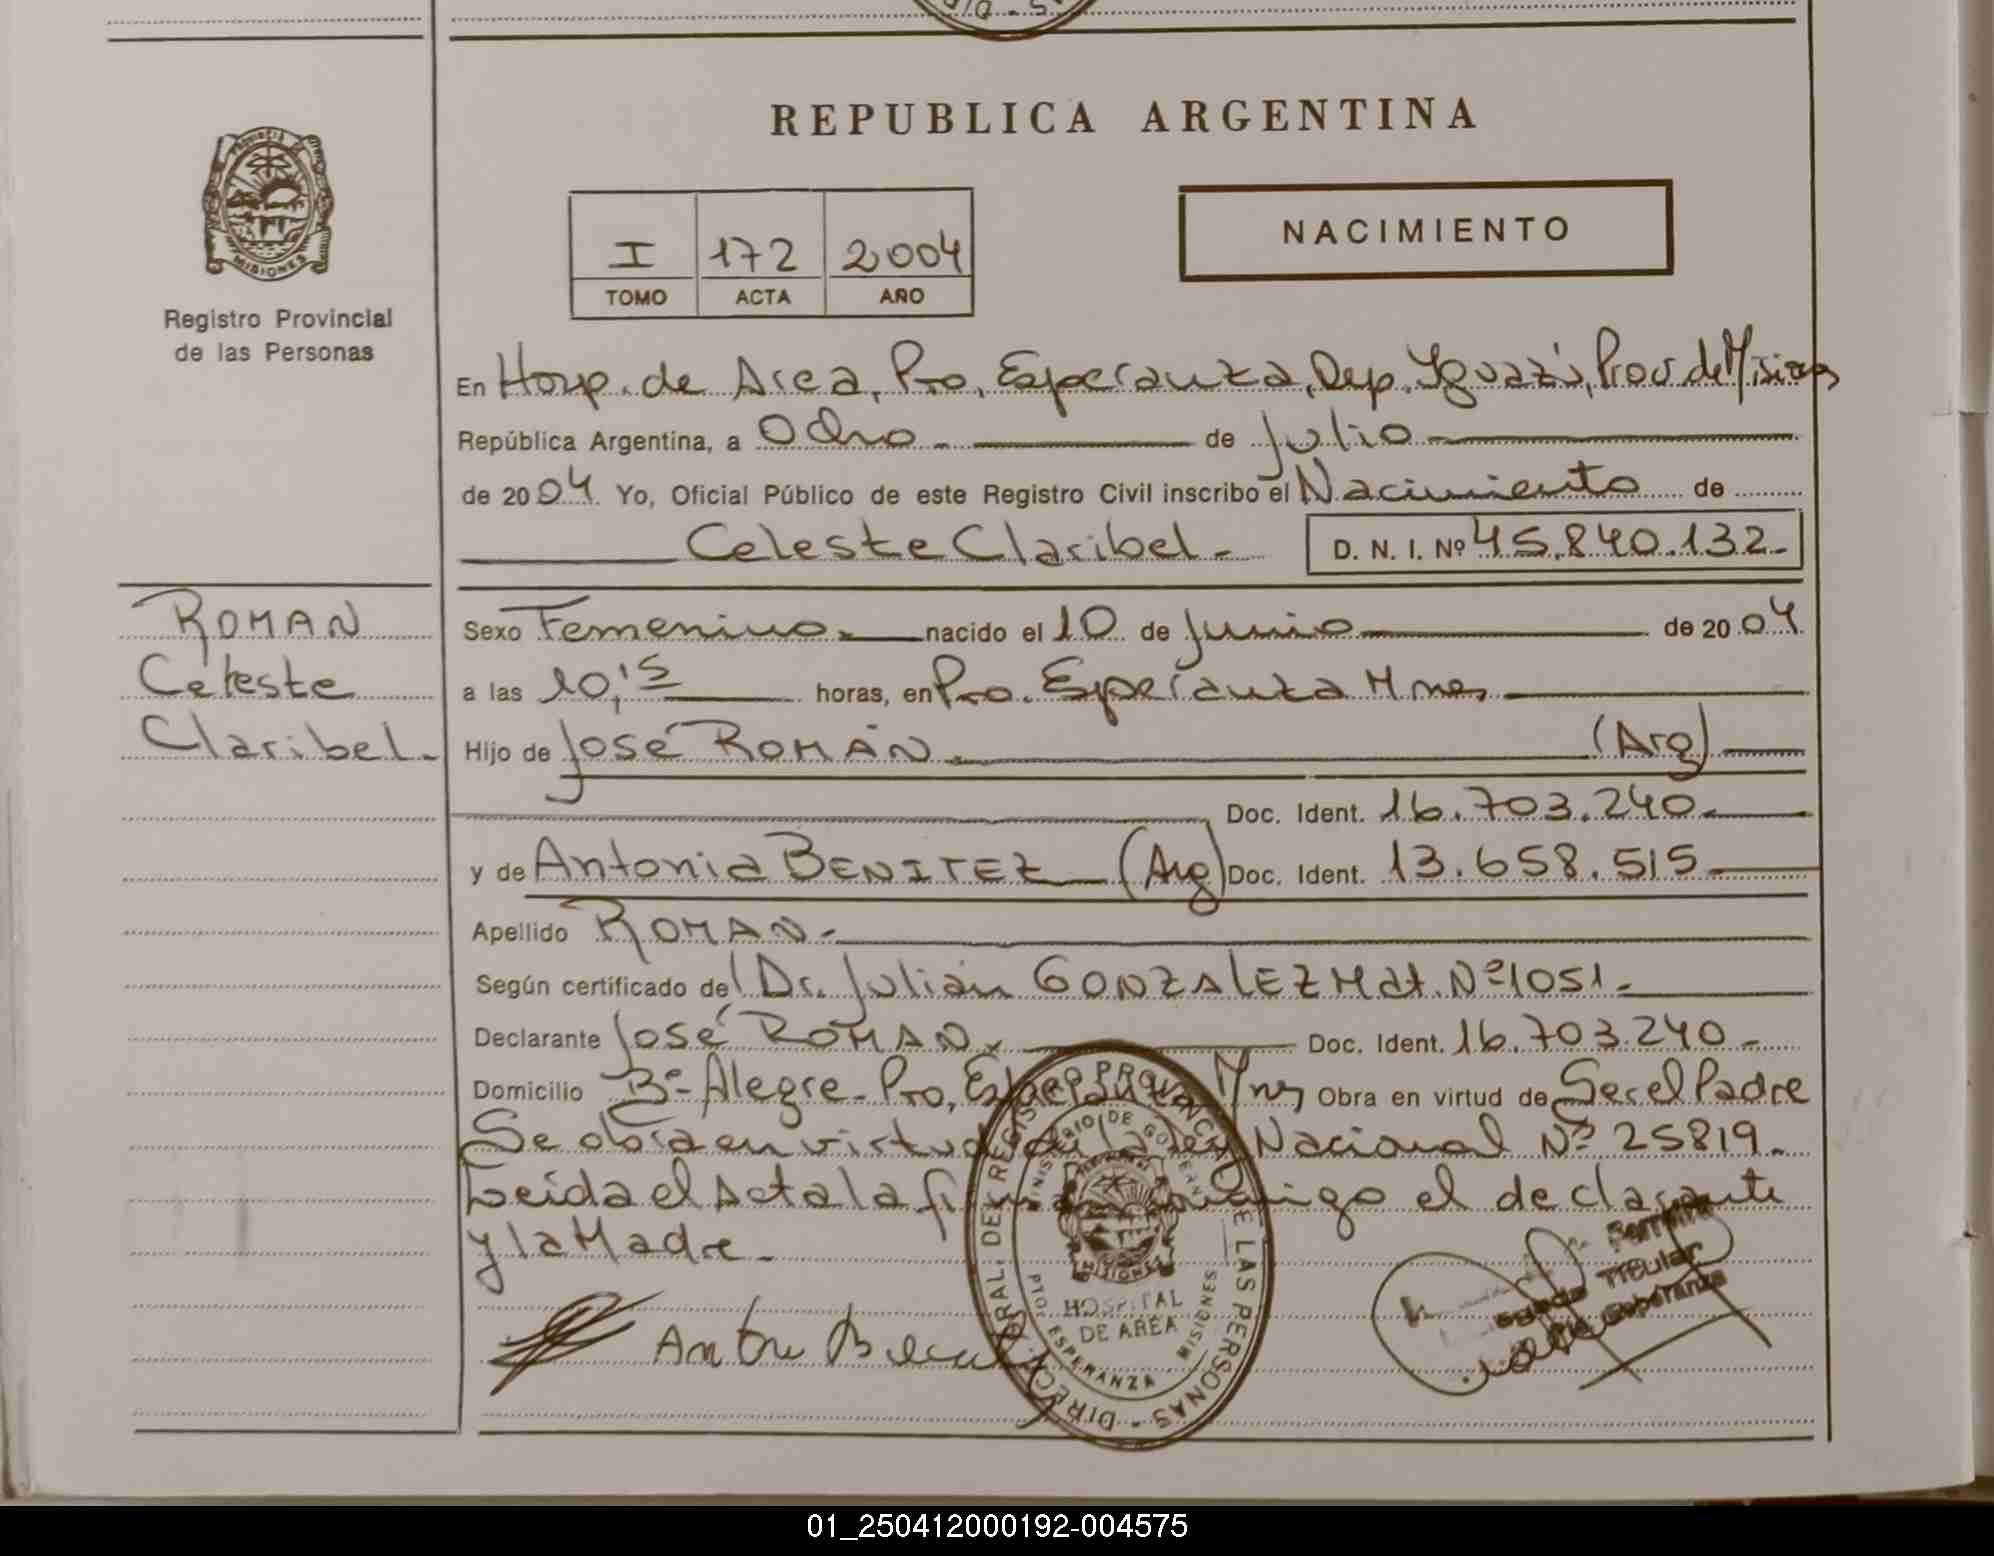 REPUBLICA ARGENTINA
PROVINCIA
MISIONES
Registro Provincial
de las Personas
I 172 2004
TOMO ACTA AÑO
NACIMIENTO
En Hosp. de Area, Pto. Esperanza, Dep. Iguazú, Prov de Misiones
República Argentina, a Ocho de Julio
de 2004 Yo, Oficial Público de este Registro Civil inscribo el Nacimiento de
Celeste Claribel.- D. N. I. Nº 45.840.132-
ROMAN
Celeste
Claribel.-
Sexo Femenino.- nacido el 10 de Junio de 2004
a las 10,15 horas, en Pto. Esperanza Mnes
Hijo de José ROMÁN (Arg)
Doc. Ident. 16.703.240.-
y de Antonia BENITEZ (Arg) Doc. Ident. 13.658.515
Apellido ROMAN.-
Según certificado del Dr. Julián GONZALEZ Mat. Nº 1051.-
Declarante José ROMAN. Doc. Ident. 16.703.240.-
Domicilio Bº- Alegre- Pto. Esperanza Mnes Obra en virtud de Ser el Padre
Se obra en virtud de la Ley Nacional Nº 25819.-
Leida el Acta la firman conmigo el declarante
y la Madre.-
DIREC. GRAL. DEL REGISTRO PROVINCIAL DE LAS PERSONAS
MINISTERIO DE GOBIERNO
MISIONES
HOSPITAL
DE AREA
PTO. ESPERANZA MISIONES
Titular
Esperanza
01_250412000192-004575